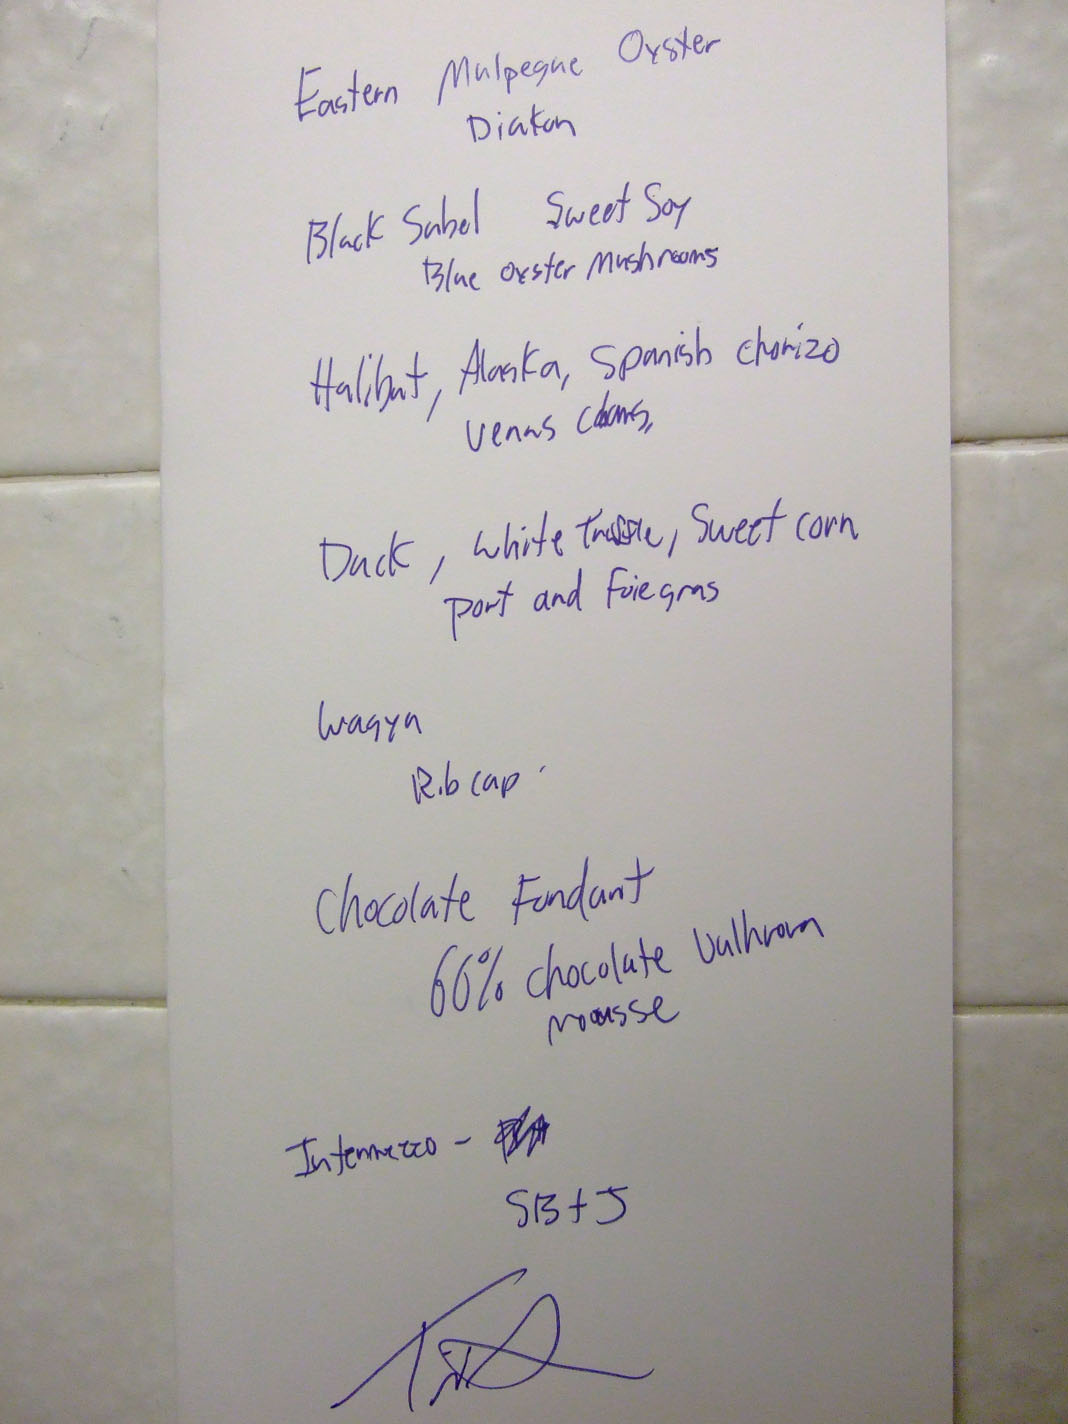 Eastern Mulpeque Oyster
Diakon
Black Sabel Sweet Soy
Blue Oyster Mushrooms
Halibut, Alaska, Spanish chorizo
Venus Clams,
Duck, White Truffle, Sweet corn
Port and Foiegras
Wagyu
Rib cap
Chocolate Fondant
66% chocolate Valhrona
mousse
Intermezzo -
SB+J